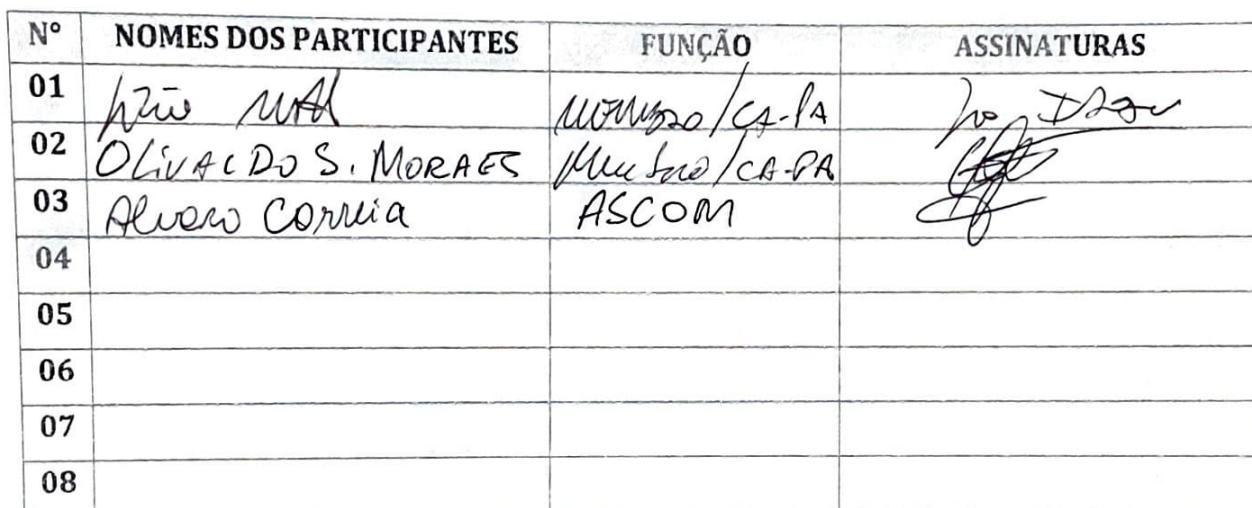 Nº NOMES DOS PARTICIPANTES FUNÇÃO ASSINATURAS
01 /CA-PA
02 OLIVALDO S. MORAES Membro/CA-PA
03 Alvaro Correia ASCOM
04
05
06
07
08